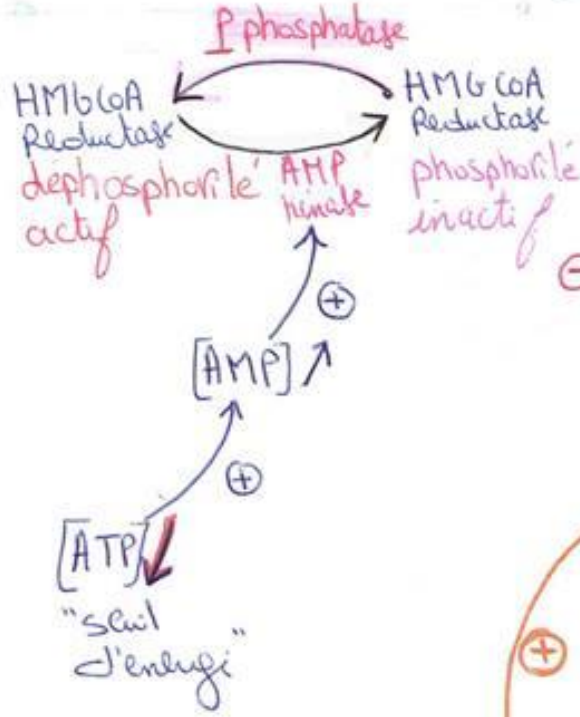 P phosphatase
HMGCoA
Reductase
dephosphorilé
actif
AMP
kinase
HMG CoA
Reductase
phosphorilé
inactif
⊖
⊕
[AMP] ↗
⊕
[ATP] ↓
"seuil
d'energi"
⊕